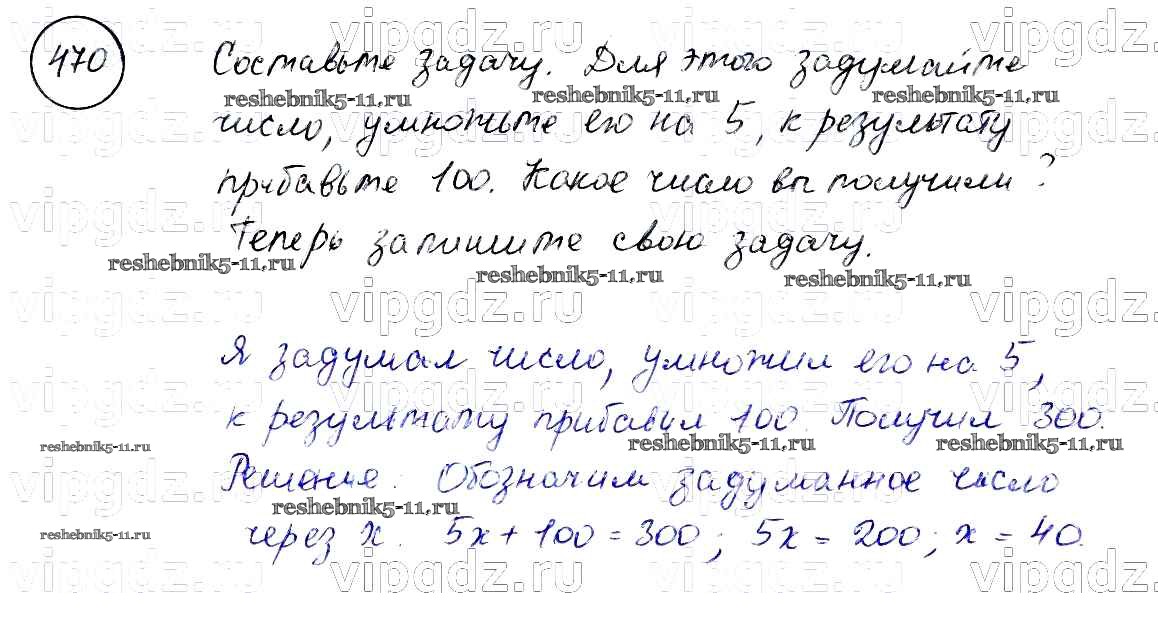 470
Составьте задачу. Для этого задумайте
число, умножьте его на 5, к результату
прибавьте 100. Какое число вы получили?
Теперь запишите свою задачу.
Я задумал число, умножил его на 5,
к результату прибавил 100. Получил 300.
Решение. Обозначим задуманное число
через x. 5x + 100 = 300; 5x = 200; x = 40.
vipgdz.ru
reshebnik5-11.ru